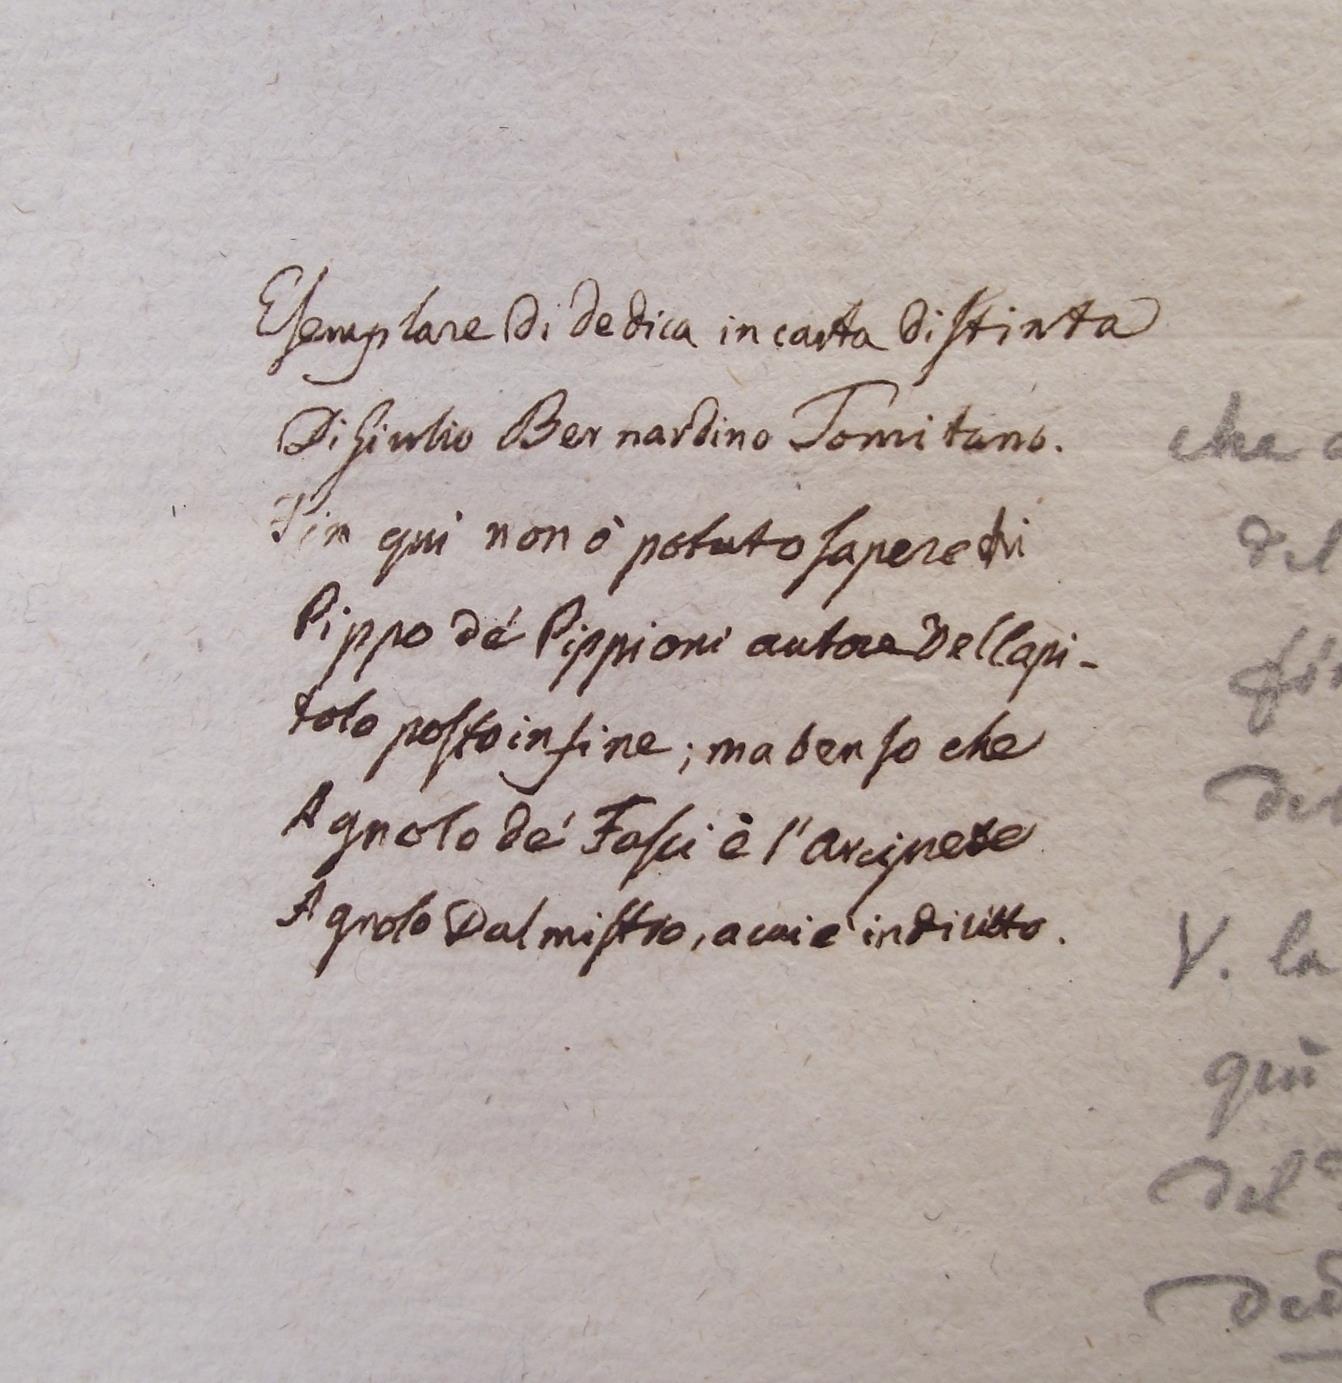 Esemplare di dedica in carta distinta
Di Giulio Bernardino Tomitano.
Fin qui non ò potuto sapere chi
Pippo de' Pippioni autore Del Capi-
tolo posto in fine; ma ben so che
Agnolo de' Fasci è l'Arciprete
Agnolo Dalmistro, a cui è indiritto.
che
del
V. la
qui